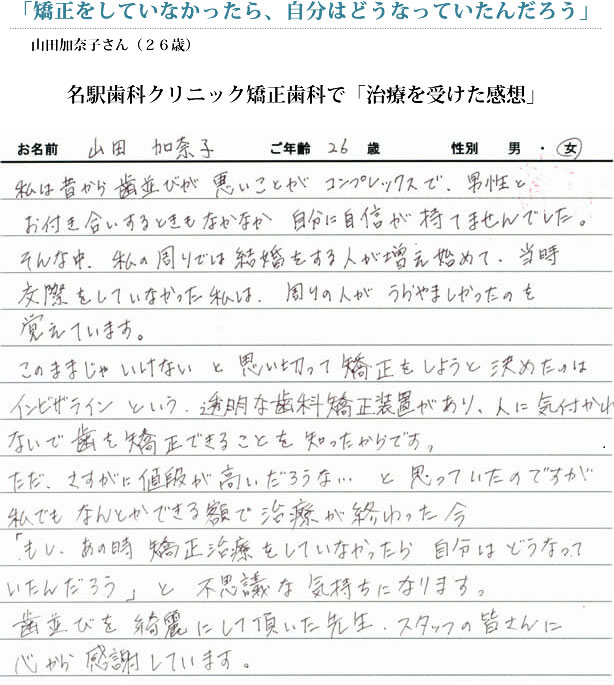 「矯正をしていなかったら、自分はどうなっていたんだろう」
山田加奈子さん（２６歳）
名駅歯科クリニック矯正歯科で「治療を受けた感想」
お名前 山田 加奈子 ご年齢 26 歳 性別 男 ・ 女
私は昔から歯並びが悪いことがコンプレックスで、男性と
お付き合いするときもなかなか自分に自信が持てませんでした。
そんな中、私の周りでは結婚をする人が増え始めて、当時
交際をしていなかった私は、周りの人がうらやましかったのを
覚えています。
このままじゃいけないと思い切って矯正をしようと決めたのは
インビザラインという、透明な歯科矯正装置があり、人に気付かれ
ないで歯を矯正できることを知ったからです。
ただ、さすがに値段が高いだろうな… と思っていたのですが
私でもなんとかできる額で治療が終わった今
「もし、あの時矯正治療をしていなかったら自分はどうなって
いたんだろう」と不思議な気持ちになります。
歯並びを綺麗にして頂いた先生、スタッフの皆さんに
心から感謝しています。